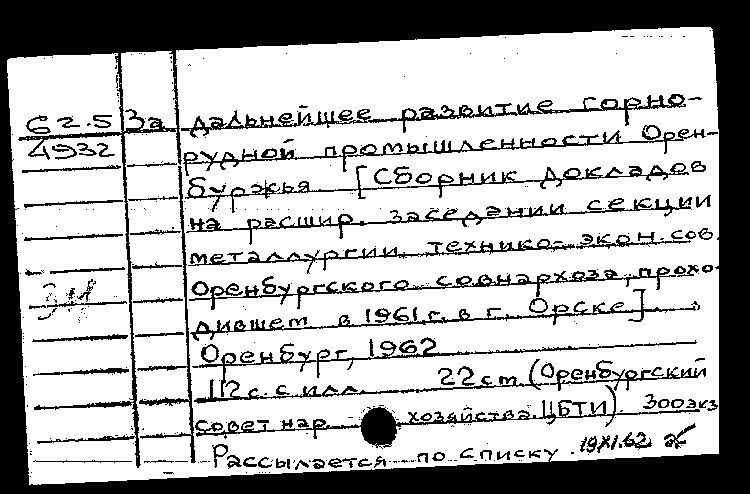 62.5 За Дальнейшее развитие горно-
4932 рудной промышленности Орен-
буржья [Сборник докладов
на расшир. заседании секции
металлургии технико-экон. сов.
Оренбургского совнархоза, прохо-
дившем в 1961 г. в г. Орске]
Оренбург, 1962
112 с. с илл. 22 см. (Оренбургский
совет нар. хозяйства. ЦБТИ). 300 экз
Рассылается по списку. 19/XI.62